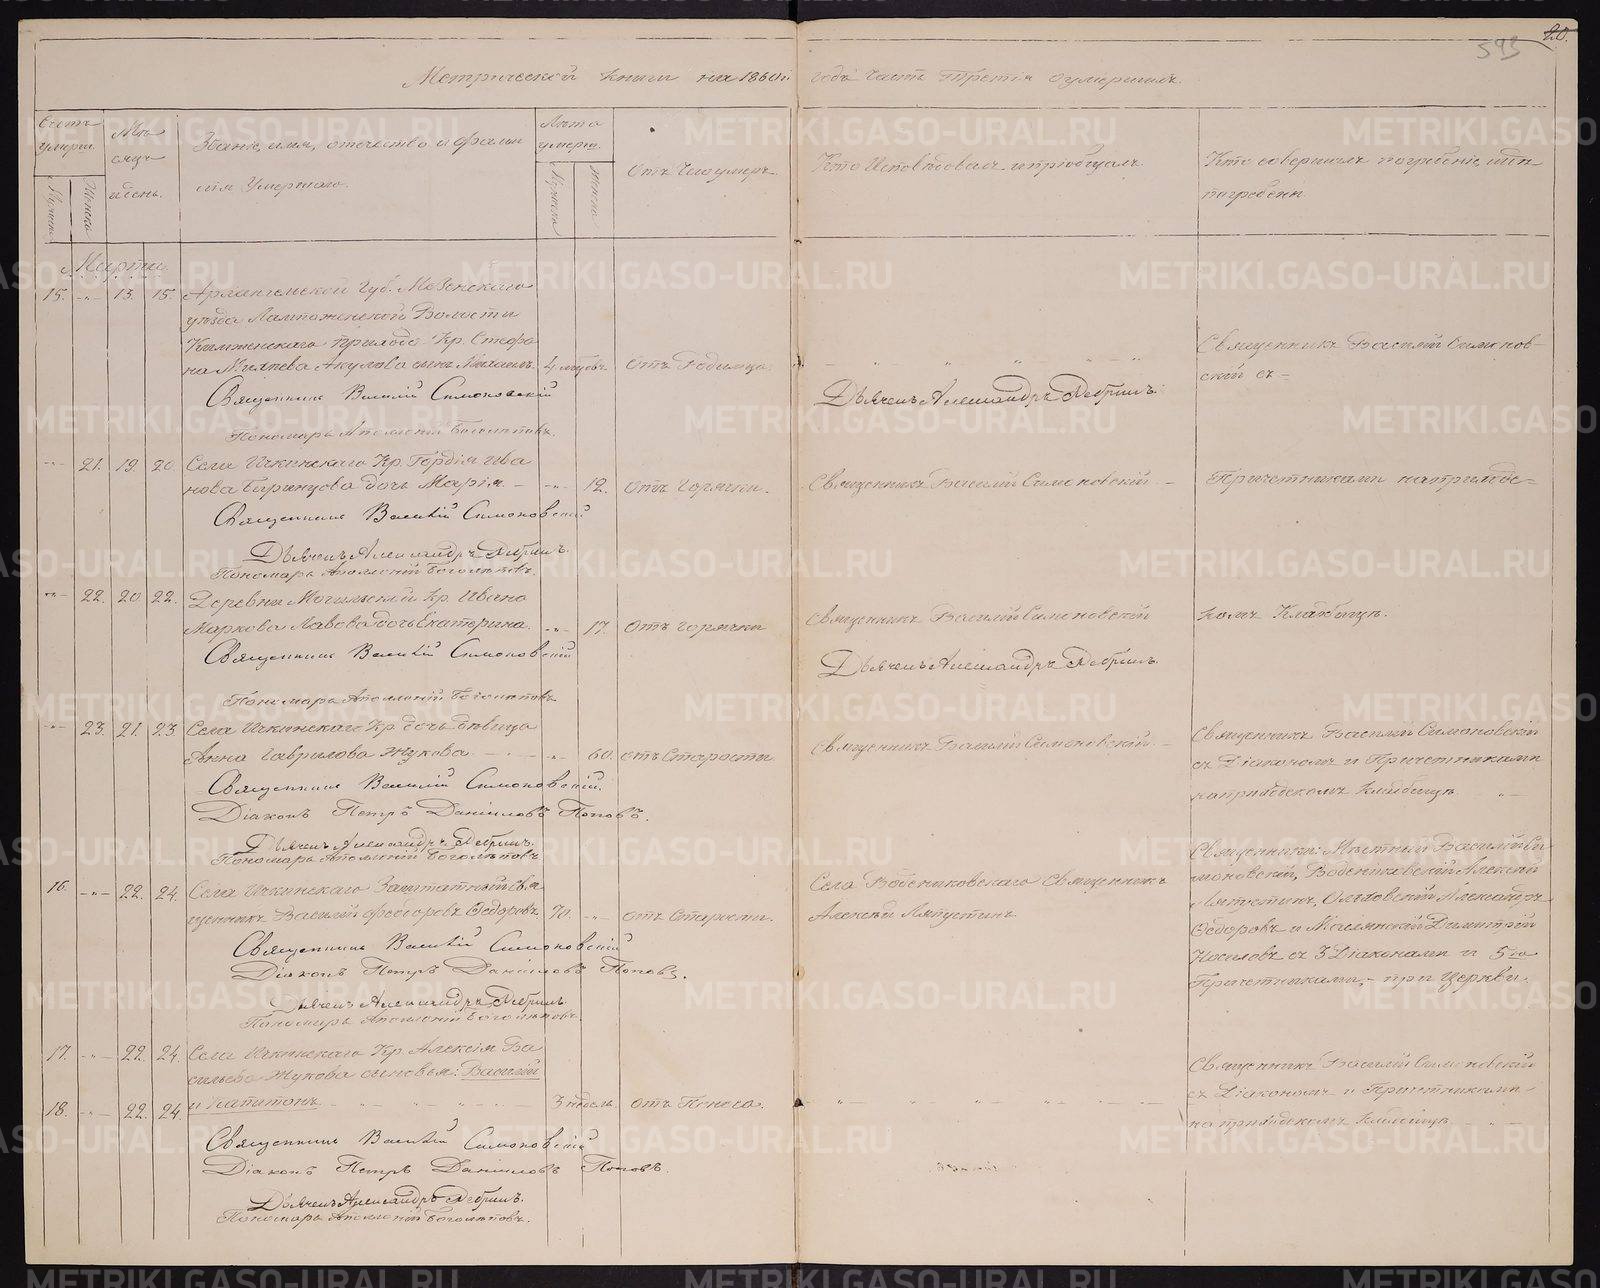 20.
593
Метрической книги на 1860й годъ часть третія о умершихъ.
Счетъ умерш.
Мужеска
Женска
Мѣсяцъ и день.
Званіе, имя, отчество и фамилія умершаго.
Лѣта умерш.
Мужеска
Женска
Отъ чего умеръ
Кто исповѣдовалъ и пріобщалъ.
Кто совершалъ погребеніе и гдѣ погребены
Марта.
15. -„- 13. 15. Архангельской Губ. Мезенскаго
уѣзда Лампоженской Волости
Кр.
сынъ Михаилъ. 4 мѣсцъ отъ Родимца.
Священникъ Василій Симоновскій съ
Священникъ Василій Симоновскій
Дьячекъ Александръ Дебринъ.
Пономарь Аполлоній Боголѣповъ.
-„- 21. 19. 20. Села Ичкинскаго Кр. Гордія Ива
нова дочь Марія. -„- 12. отъ горячки. Священникъ Василій Симоновскій Причетниками на приходс=
Священникъ Василій Симоновскій
Дьячекъ Александръ Дебринъ.
Пономарь Аполлоній Боголѣповъ.
-„- 22. 20 22. Деревни Кр. Ивана
Маркова дочь Екатерина. -„- 17. отъ горячки Священникъ Василій Симоновскій комъ Кладбищѣ.
Священникъ Василій Симоновскій
Дьячекъ Александръ Дебринъ.
Пономарь Аполлоній Боголѣповъ
-„- 23. 21. 23. Села Ичкинскаго Кр. дочь дѣвица
Анна Гаврилова Жукова. -„- 60. отъ старости Священникъ Василій Симоновскій
Священникъ Василій Симоновскій
съ Діакономъ и Причетниками
на приходскомъ кладбищѣ.
Священникъ Василій Симоновскій.
Діаконъ Петръ Даниловъ Поповъ.
Дьячекъ Александръ Дебринъ.
Пономарь Аполлоній Боголѣповъ
16. -„- 22. 24. Села Ичкинскаго Заштатный свя
щенникъ Василій Феодоровъ Ѳедоровъ 70. -„- отъ старости.
Села Священникъ
Алексѣй Ляпустинъ.
Священники: Мѣстный Василій Си
моновскій, Алексѣй
Ляпустинъ, Александръ
Ѳедоровъ и Димитрій
Носиловъ съ 3 Діаконами и 5ю
Причетниками, при Церкви.
Священникъ Василій Симоновскій
Діаконъ Петръ Даниловъ Поповъ.
Дьячекъ Александръ Дебринъ
Пономарь Аполлоній Боголѣповъ.
17. -„- 22. 24. Села Ичкинскаго Кр. Алексія Ва
сильева Жукова сыновья: Василій
18. -„- 22. 24. и Капитонъ. 3 недѣль.
Священникъ Василій Симоновскій
съ Діакономъ и Причетниками
на приходскомъ кладбищѣ
Священникъ Василій Симоновскій
Діаконъ Петръ Даниловъ Поповъ.
Дьячекъ Александръ Дебринъ.
Пономарь Аполлоній Боголѣповъ.
METRIKI.GASO-URAL.RU